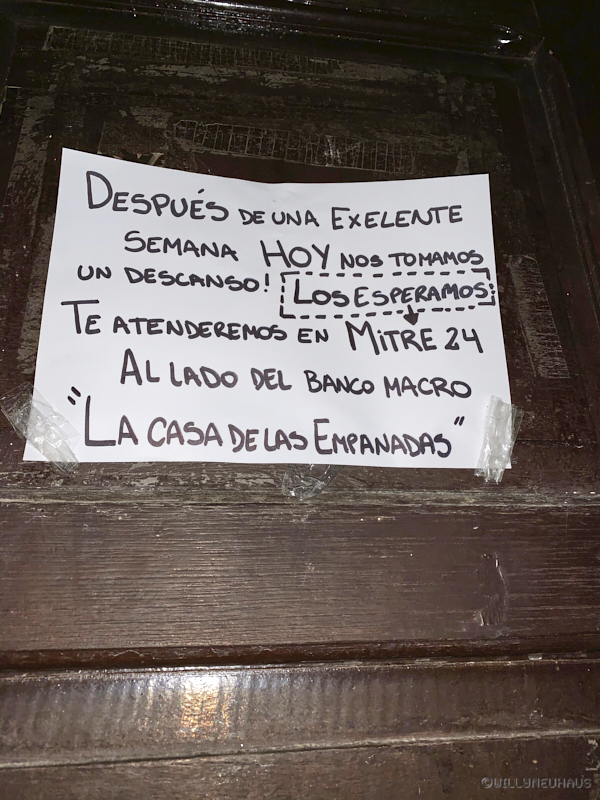 DESPUÉS DE UNA EXELENTE
SEMANA HOY NOS TOMAMOS
UN DESCANSO! LOS ESPERAMOS:
TE ATENDEREMOS EN MITRE 24
AL LADO DEL BANCO MACRO
"LA CASA DE LAS EMPANADAS"
©WILLYNEUHAUS